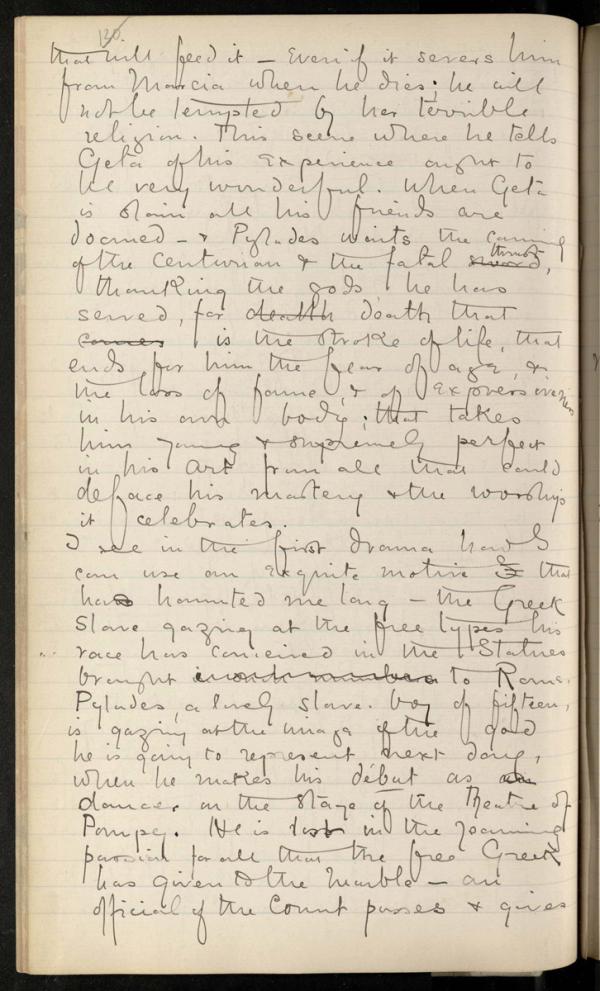 120
that will feed it — Even if it severs him
from Marcia when he dies; he will
not be tempted by her terrible
religion. This scene where he tells
Geta of his experience ought to
be very wonderful. When Geta
is slain all his friends are
doomed — & Pylades waits the coming
of the Centurion & the fatal sword thrust,
thanking the gods he has
served, for death death that
comes is the stroke of life, that
ends for him the fear of age, &
the loss of fame, & of expressiveness
in his own body; that takes
him young & supremely perfect
in his art from all that could
deface his mastery & the worship
it celebrates.
I see in the first drama how I
can use an exquisite motive that
has haunted me long — the Greek
Slave gazing at the free types his
race has conceived in the Statues
brought in such numbers to Rome.
Pylades, a lovely slave-boy of fifteen,
is gazing at the image of the god
he is going to represent next day,
when he makes his début as
dancer on the stage of the Theatre of
Pompey. He is lost in the yearning
passion for all that the free Greek
has given to the Marble — an
official of the Court passes & gives